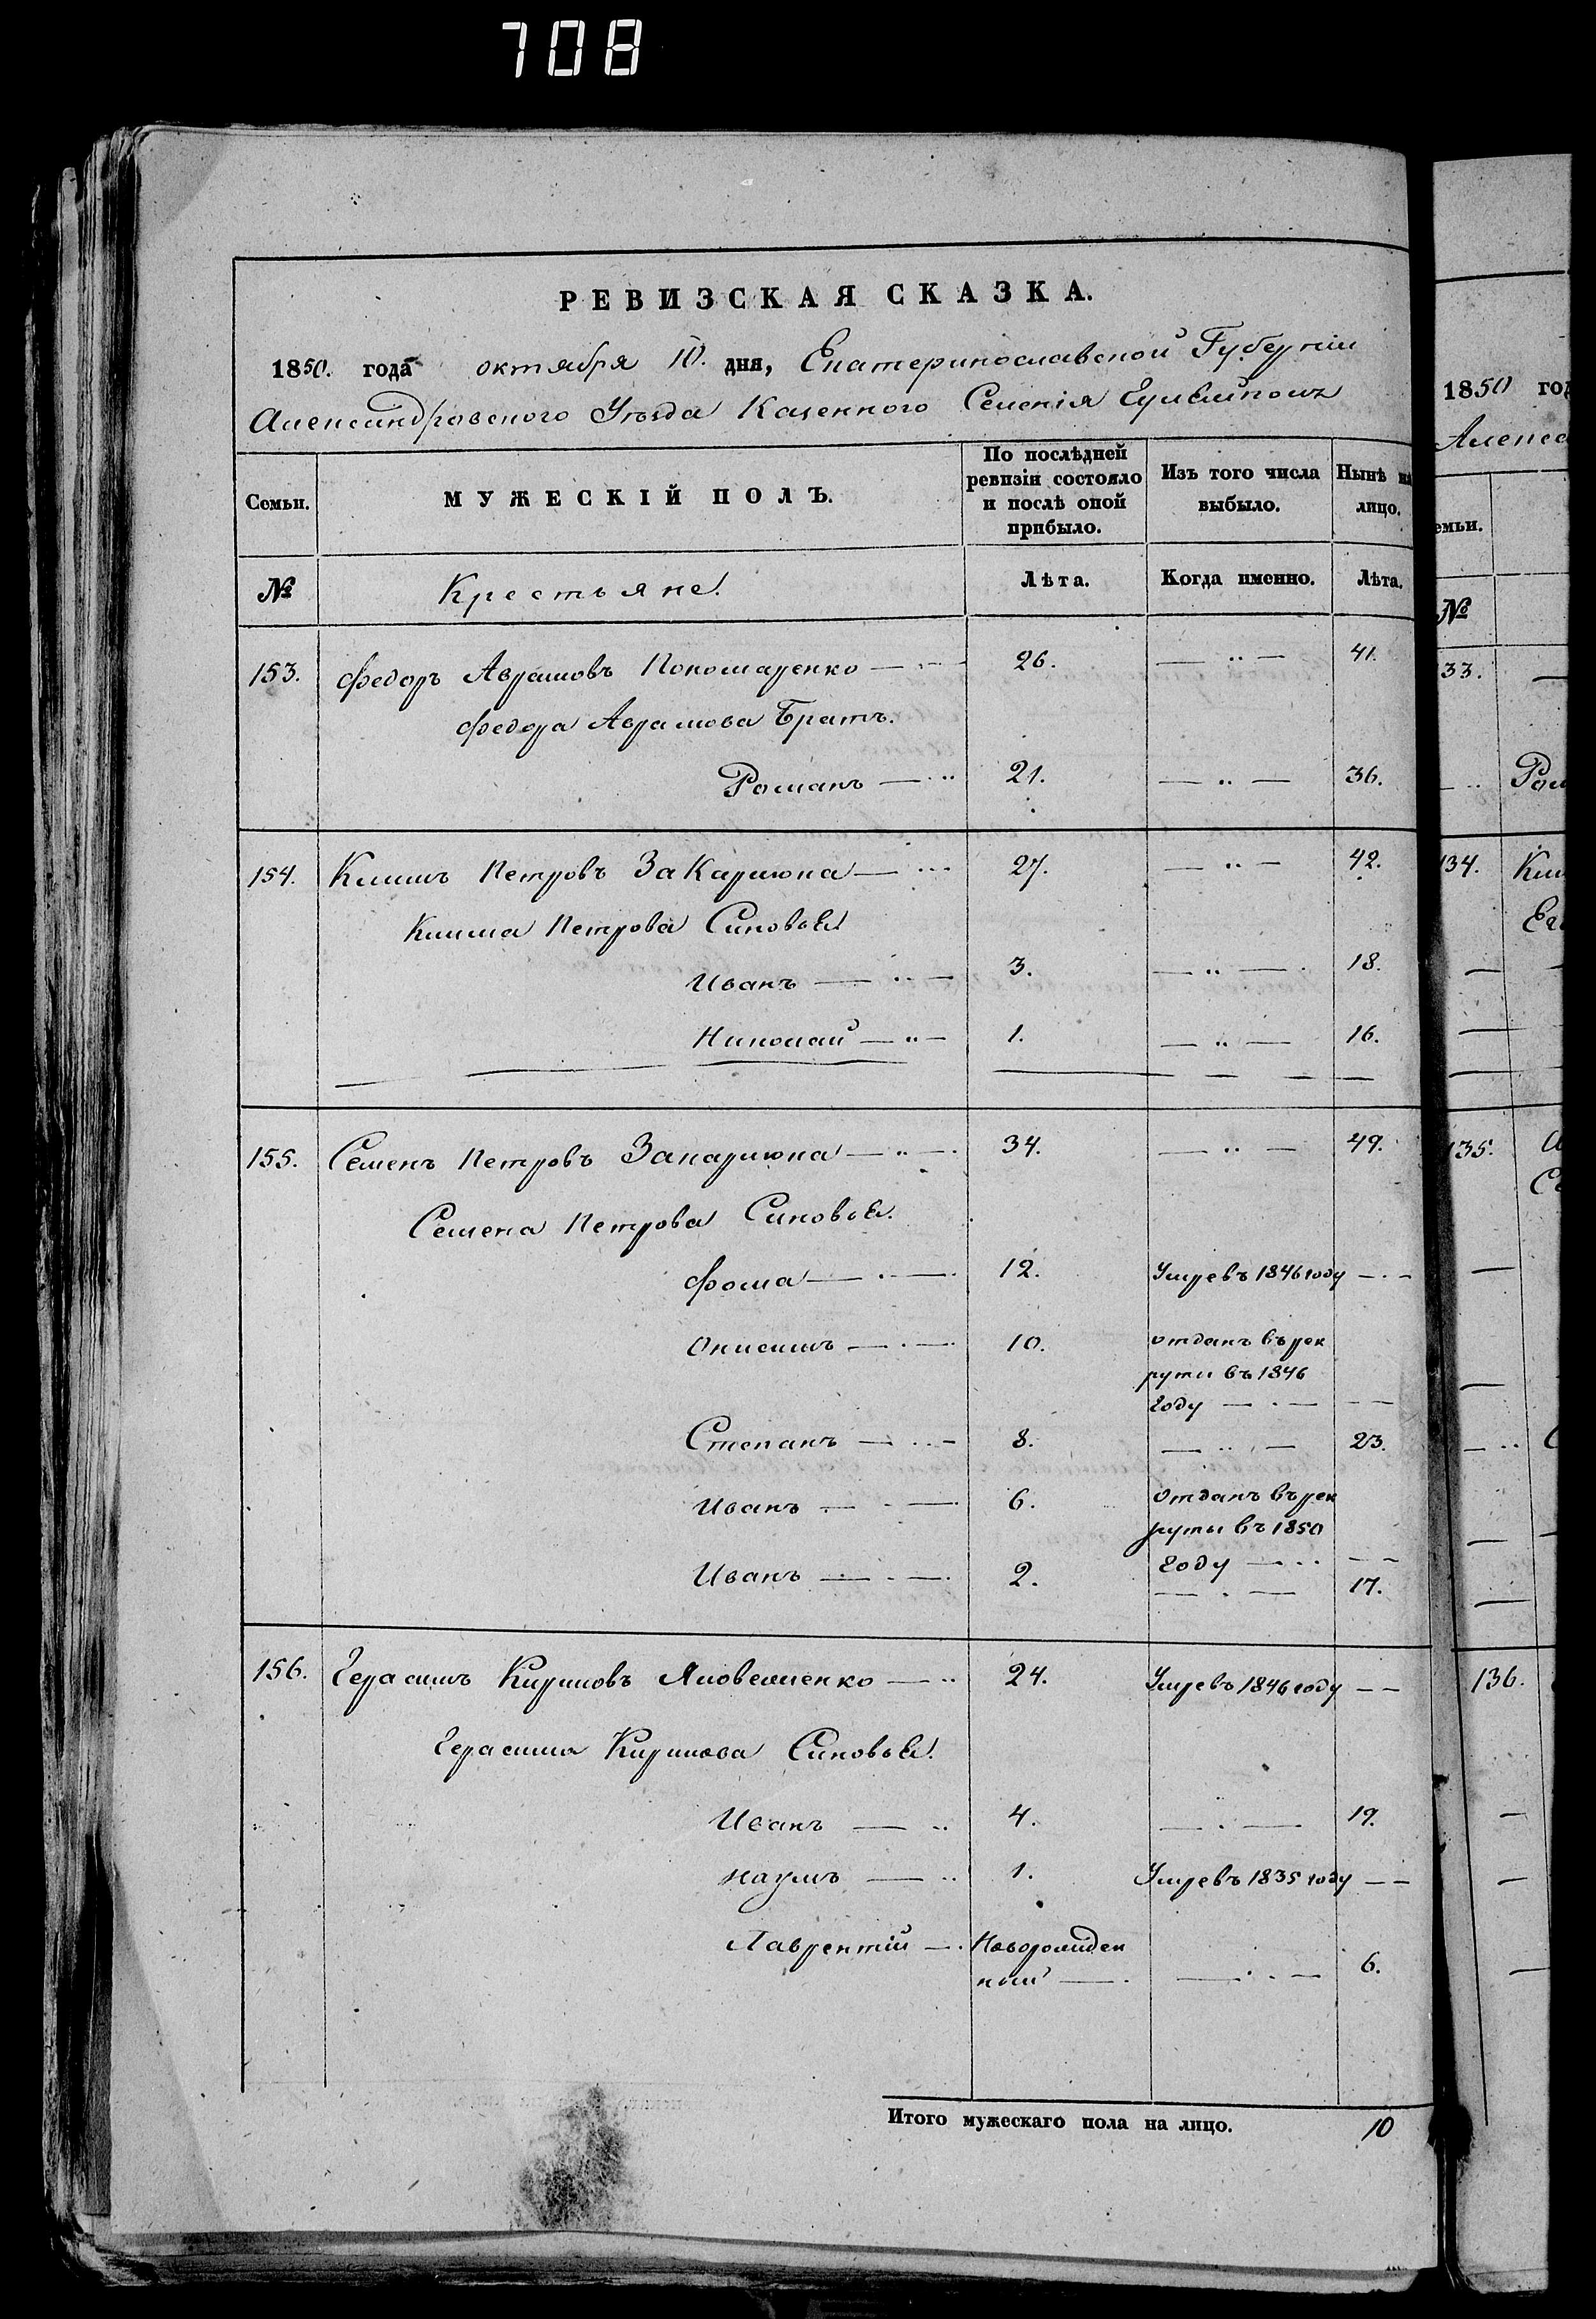 708
РЕВИЗСКАЯ СКАЗКА.
1850. года октября 10. дня, Екатеринославской Губернии
Александровского Уѣзда Казенного Селенія Гуляйполя
Семьи. МУЖЕСКІЙ ПОЛЪ. По послѣдней ревизіи состояло и послѣ оной прибыло. Изъ того числа выбыло. Нынѣ на лицо.
№ Крестьяне. Лѣта. Когда именно. Лѣта.
153. Федоръ Аврамовъ Пономаренко — 26. — „ — 41.
Федора Аврамова Братъ.
Романъ — 21. — „ — 36.
154. Климъ Петровъ Закарлюка — 27. — „ — 42.
Клима Петрова Синовья
Иванъ — 3. — „ — 18.
Николай — 1. — „ — 16.
155. Семенъ Петровъ Закарлюка — 34. — „ — 49.
Семена Петрова Синовья.
Фома — 12. Умревъ 1846 году — —
Онисимъ — 10. отданъ въ рек
рути въ 1846
году — —
Степанъ — 8. — „ — 23.
Иванъ — 6. Отданъ въ рек
руты въ 1850
году — —
Иванъ — 2. — „ — 17.
156. Герасимъ Кириловъ Яковлменко — 24. Умревъ 1846 году — —
Герасима Кирилова Синовья.
Иванъ — 4. — „ — 19.
Наумъ — 1. Умревъ 1835 году — —
Лаврентій — Новорожден
ный — — „ — 6.
Итого мужескаго пола на лицо. 10
1850 год
Алекса
емьи.
№
33.
Ром
134. Кли
135.
136.